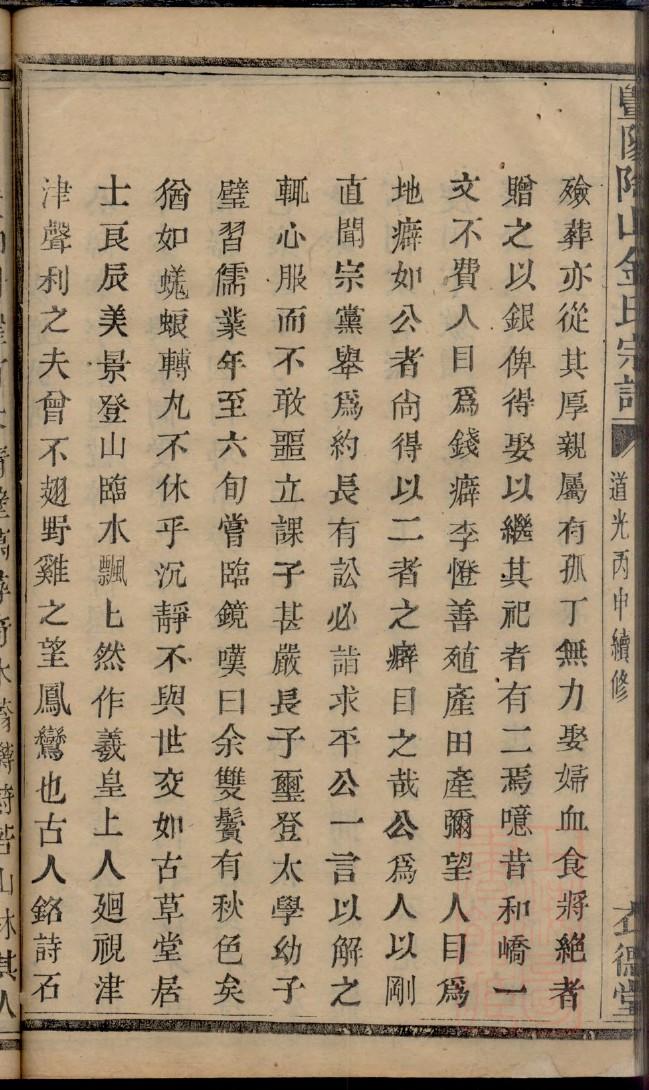 暨陽陶山金氏宗譜 道光丙申續修 大德堂
殮葬亦從其厚親屬有孤丁無力娶婦血食將絕者
贈之以銀俾得娶以繼其祀者有二焉噫昔和嶠一
文不費人目爲錢癖李憕善殖產田產彌望人目爲
地癖如公者尙得以二者之癖目之哉公爲人以剛
直聞宗黨舉爲約長有訟必詣求平公一言以解之
輒心服而不敢噩立課子甚嚴長子璽登太學幼子
璧習儒業年至六旬嘗臨鏡嘆曰余雙鬢有秋色矣
猶如蟯蜋轉丸不休乎沉靜不與世交如古草堂居
士良辰美景登山臨水飄上然作羲皇上人廻視津
津聲利之夫曾不翅野雞之望鳳鸞也古人銘詩石